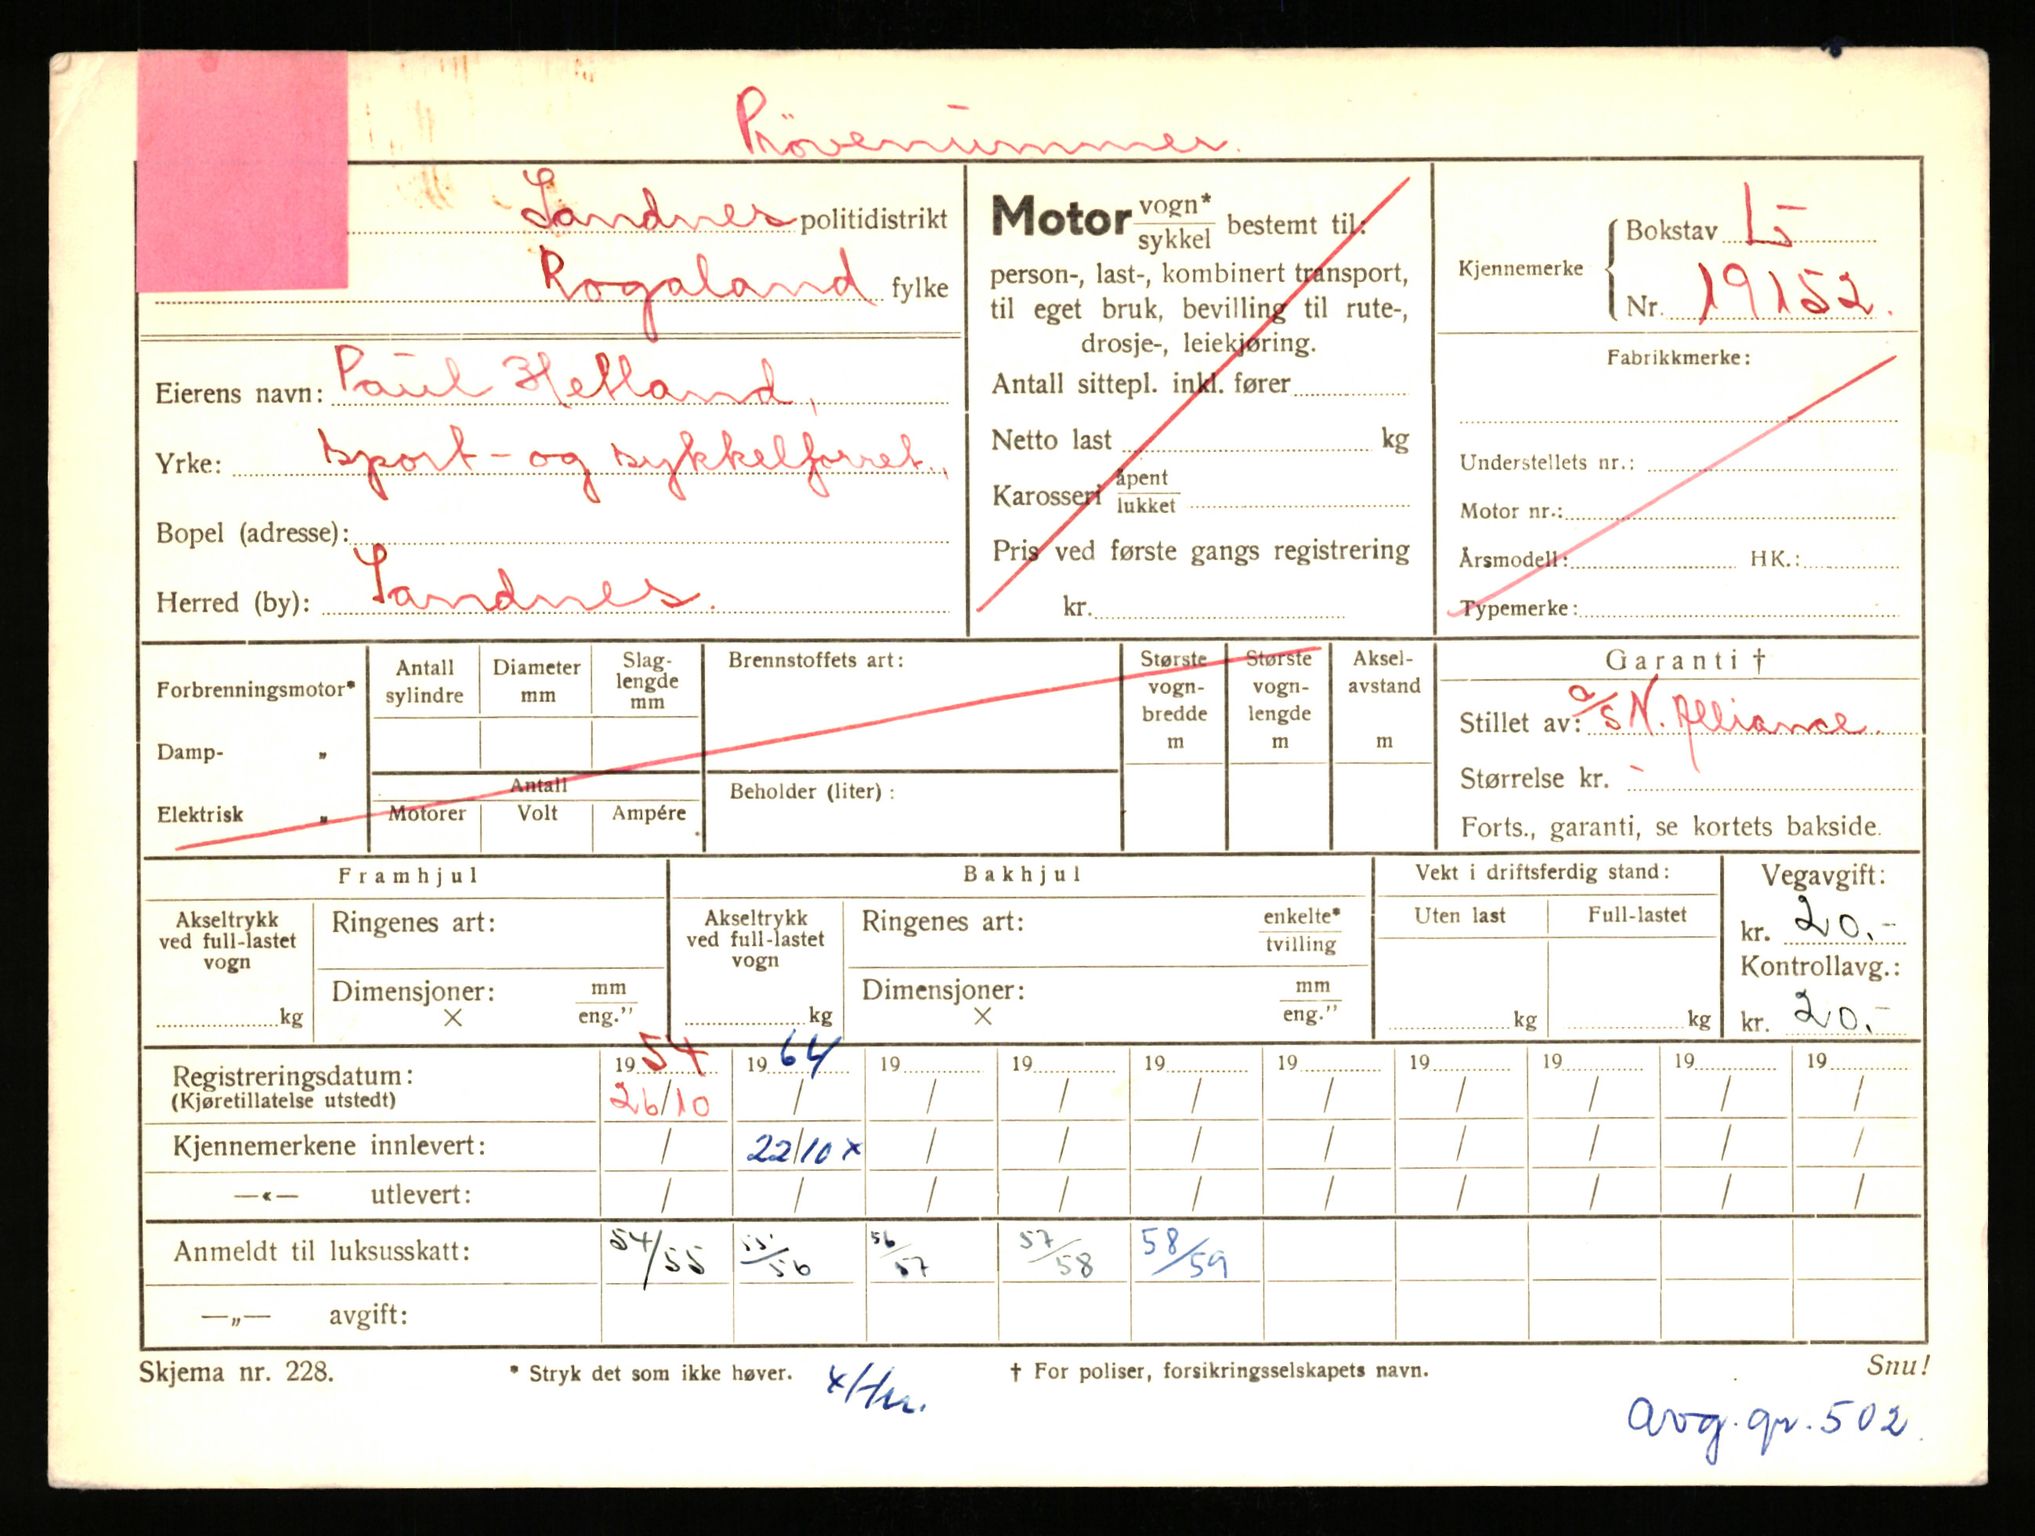 Prövenummer.
Sandnes politidistrikt
Rogaland fylke
Eierens navn: Paul Hetland,
Yrke: sport- og sykkelforret.,
Bopel (adresse):
Herred (by): Sandnes.
Motor vogn* sykkel bestemt til:
person-, last-, kombinert transport,
til eget bruk, bevilling til rute-,
drosje-, leiekjøring.
Antall sittepl. inkl. fører
Netto last kg
Karosseri åpent lukket
Pris ved første gangs registrering
kr.
Kjennemerke
Bokstav L-
Nr. 19152.
Fabrikkmerke:
Understellets nr.:
Motor nr.:
Årsmodell: HK.:
Typemerke:
Forbrenningsmotor*
Damp- "
Elektrisk "
Antall sylindre
Diameter mm
Slag-lengde mm
Antall
Motorer Volt Ampére
Brennstoffets art:
Beholder (liter) :
Største vogn-bredde m
Største vogn-lengde m
Aksel-avstand m
Garanti †
Stillet av: a/s N. Alliance.
Størrelse kr. -
Forts., garanti, se kortets bakside.
Framhjul
Akseltrykk
ved full-lastet
vogn
kg
Ringenes art:
Dimensjoner: mm
× eng."
Bakhjul
Akseltrykk
ved full-lastet
vogn
kg
Ringenes art: enkelte*
tvilling
Dimensjoner: mm
× eng."
Vekt i driftsferdig stand:
Uten last Full-lastet
kg kg
Vegavgift:
kr. 20.-
Kontrollavg.:
kr. 20.-
Registreringsdatum: 1954 1964 19 19 19 19 19 19 19 19
(Kjøretillatelse utstedt) 26/10 / / / / / / / / /
Kjennemerkene innlevert: / 22/10 x / / / / / / / /
—«— utlevert: / / / / / / / / / /
Anmeldt til luksusskatt: 54/55 55/56 56/57 57/58 58/59
—„— avgift:
Skjema nr. 228. * Stryk det som ikke høver. † For poliser, forsikringsselskapets navn. Snu!
Avg. gr. 502